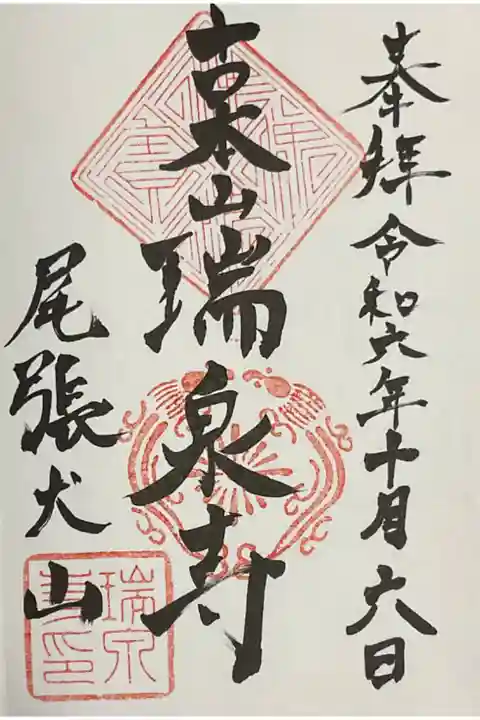 奉拝 令和六年十月六日
青龍山瑞泉寺
尾張犬山
瑞泉寺印